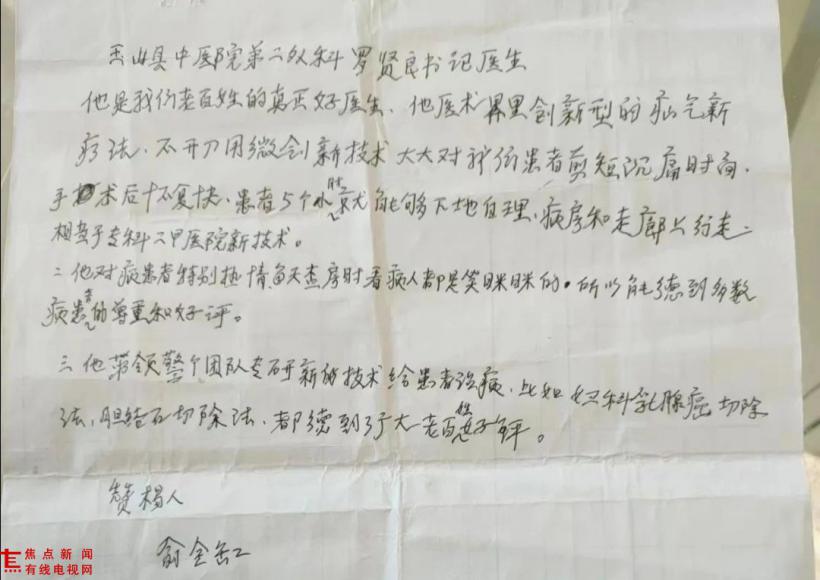 玉山县中医院第二外科罗贤良书记医生
他是我们老百姓的真正好医生、他医术 里创新型的疝气新
疗法、不开刀用微创新技术大大对我们患者剪短沉痛时间、
手术后 复快、患者5个小时就能够下地自理、病房和走廊上行走、
相当于专科三甲医院新技术。
二他对病患者特别热情每天查房时看病人都是笑眯眯的。所以能德到多数
病患者的尊重和好评。
三他带领整个团队专研新的技术给患者治病、比如妇科乳腺癌切除
法、胆结石切除法、都德到了广大老百姓好评。
赞榻人
俞金
焦点新闻
有线电视网